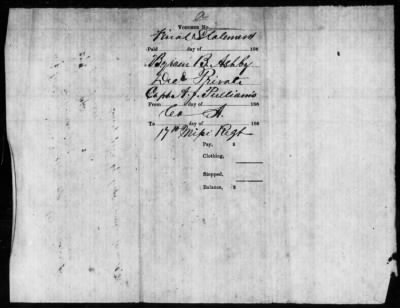 a
Voucher No.
Final Statement
Paid day of 186
Byram B. Ashby
Dec'd Private
Capt A. J. Pulliams
From day of 186
Co A.
To day of 186
17th Miss Regt
Pay, $
Clothing,
Stopped,
Balance, $